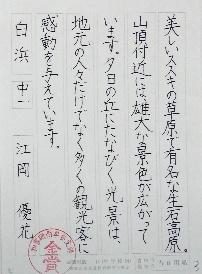 美しいススキの草原で有名な生石高原。
山頂付近には雄大な景色が広がって
います。夕日の丘にたなびく光景は、
地元の人々だけでなく多くの観光客に
感動を与えています。
白浜 中一 江岡 優花
金賞